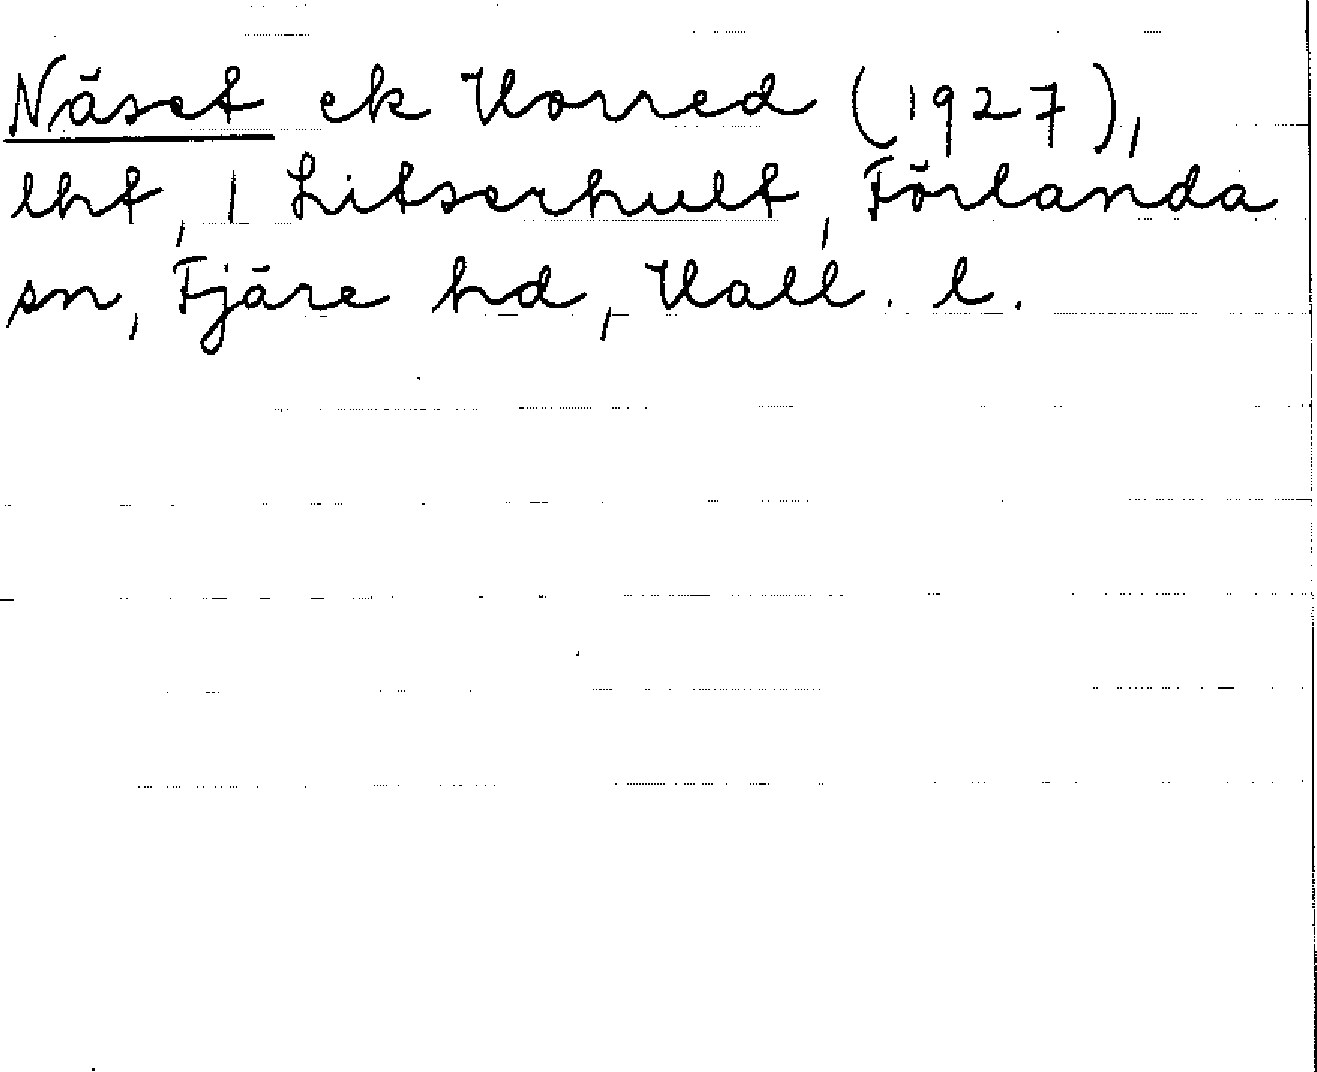 Näset ek Horred (1927),
lht, 1 Litserhult, Förlanda
sn, Fjäre hd, Hall. l.